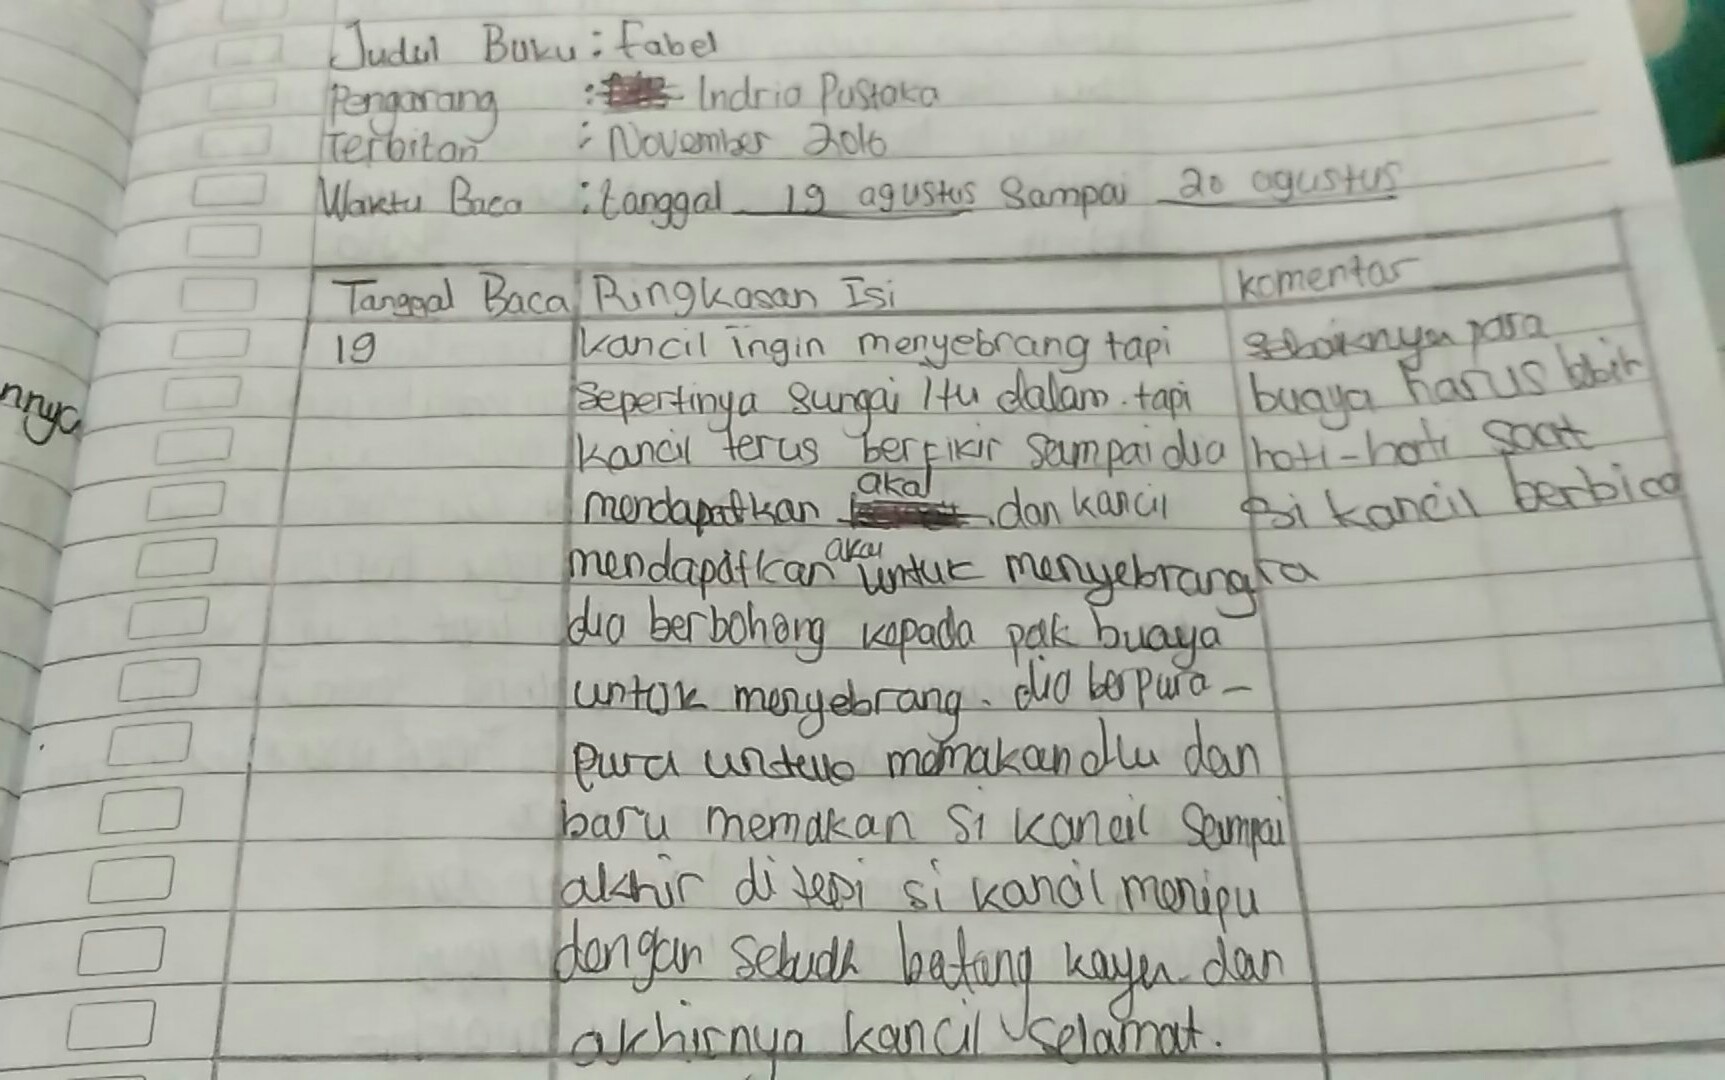 Judul Buku : Fabel
Pengarang : Indria Pustaka
Terbitan : November 2016
Waktu Baca : tanggal 19 agustus Sampai 20 agustus
Tanggal Baca Ringkasan Isi komentar
19 kancil ingin menyebrang tapi sebaiknya para
Sepertinya Sungai Itu dalam. tapi buaya harus lebih
nnya
kancil terus berfikir Sampai dia hati-hati saat
akal
mendapatkan dan kancil si kancil berbica
akal
mendapatkan untuk menyebrang ra
dia berbohong kepada pak buaya
untuk menyebrang. dia berpura-
pura memakan dlu dan
baru memakan si kancil Sampai
akhir di tepi si kancil menipu
dengan sebuah batang kayu dan
akhirnya kancil selamat.